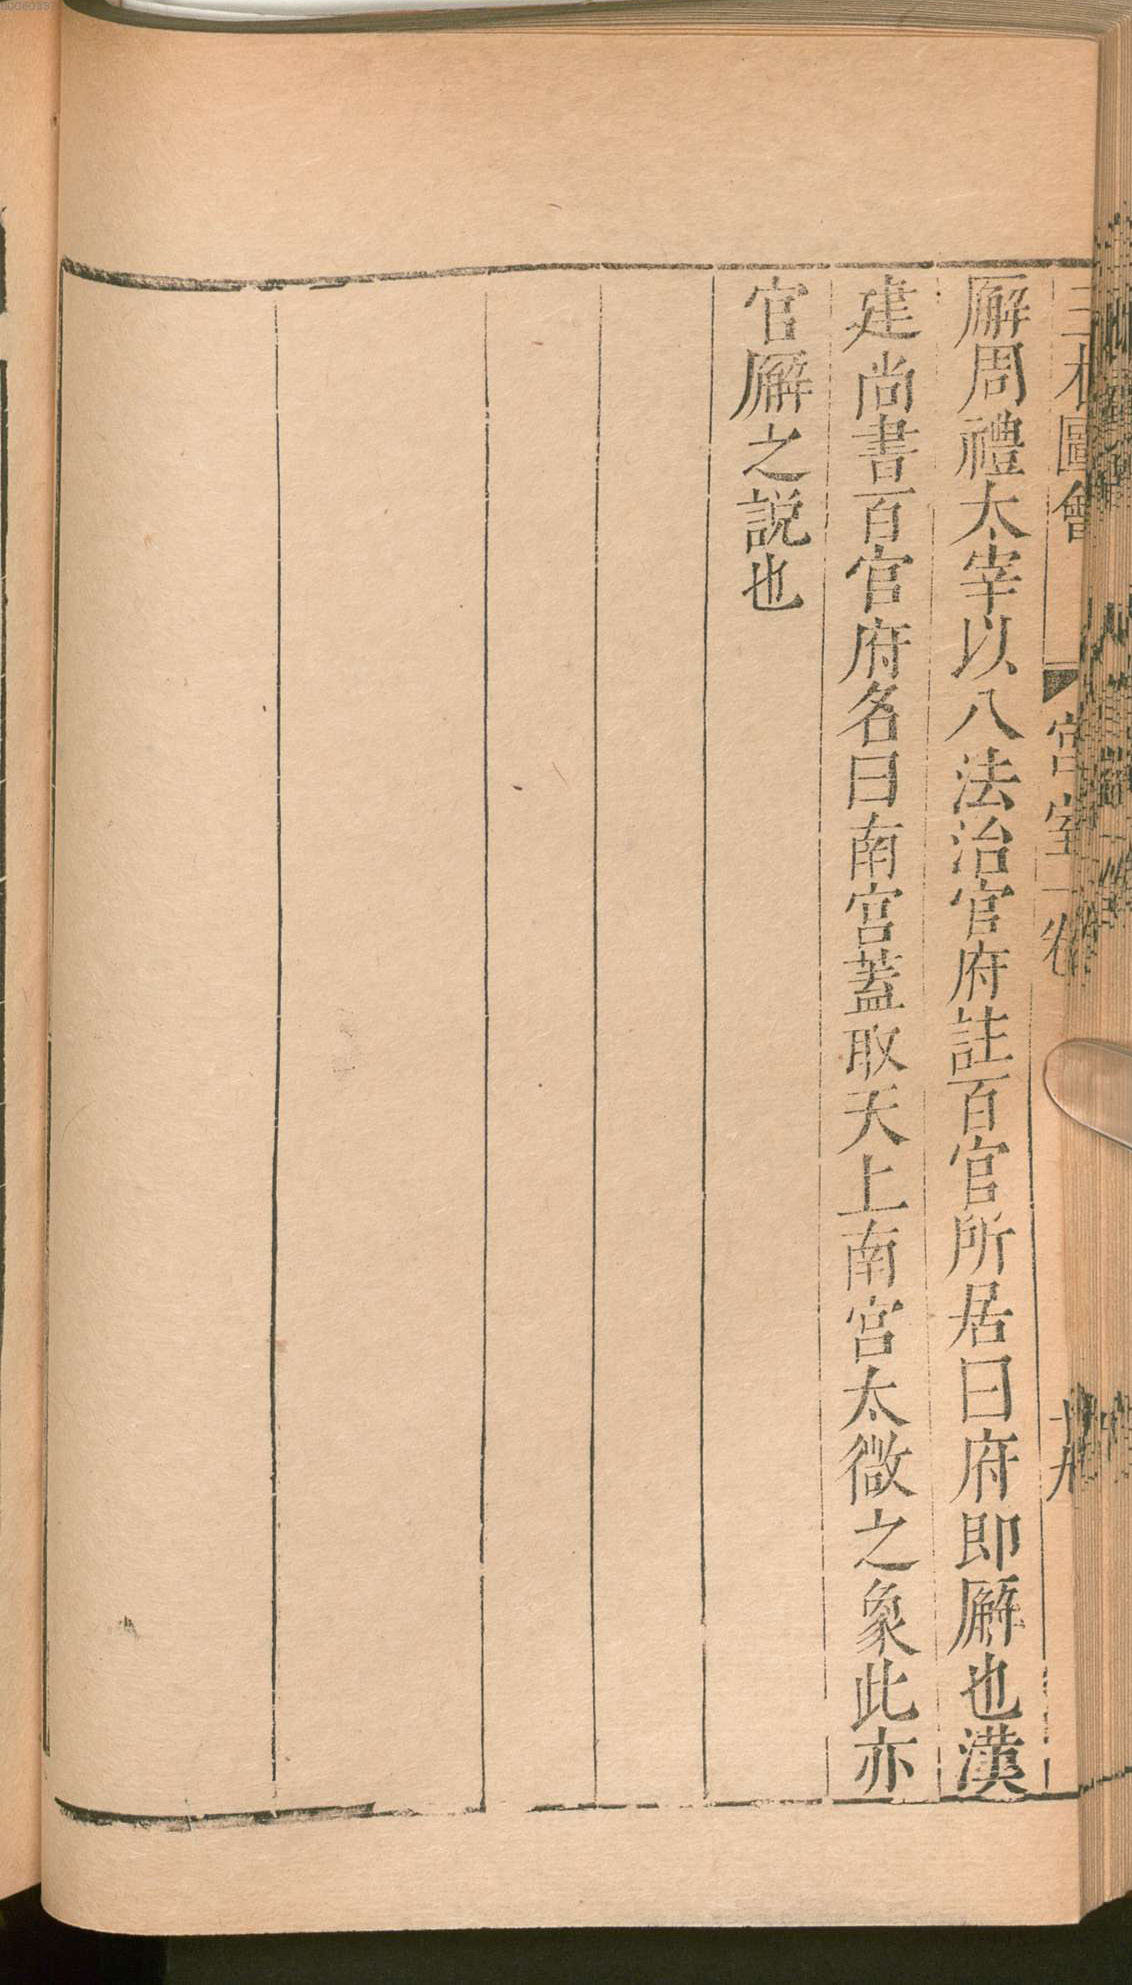 三才圖會 宮室一卷 十九
廨周禮太宰以八法治官府註百官所居曰府即廨也漢
建尚書百官府名曰南宮蓋取天上南宮太微之象此亦
官廨之説也